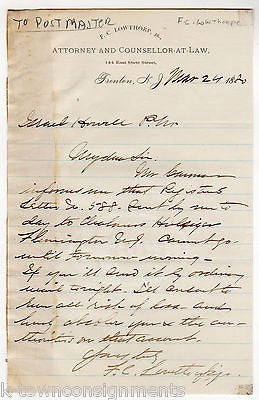 TO POST MASTER
F.C. Lowthorpe
F. C. LOWTHORP, JR.
ATTORNEY AND COUNSELLOR-AT-LAW,
144 East State Street,
Trenton, N. J. Mar 24 1880
Israel Howell P. M.
My dear Sir
Mr
informs me that Registered
letter No. 588. Sent by me to
day to Chalmers
Flemington N. J. Cannot go
until tomorrow morning -
If you'll send it by ordinary
mail tonight. I'll
run all risk of loss and
absolve you & the
on that account.
Yours truly
F. C. Lowthorp Jr.
© k-townconsignments